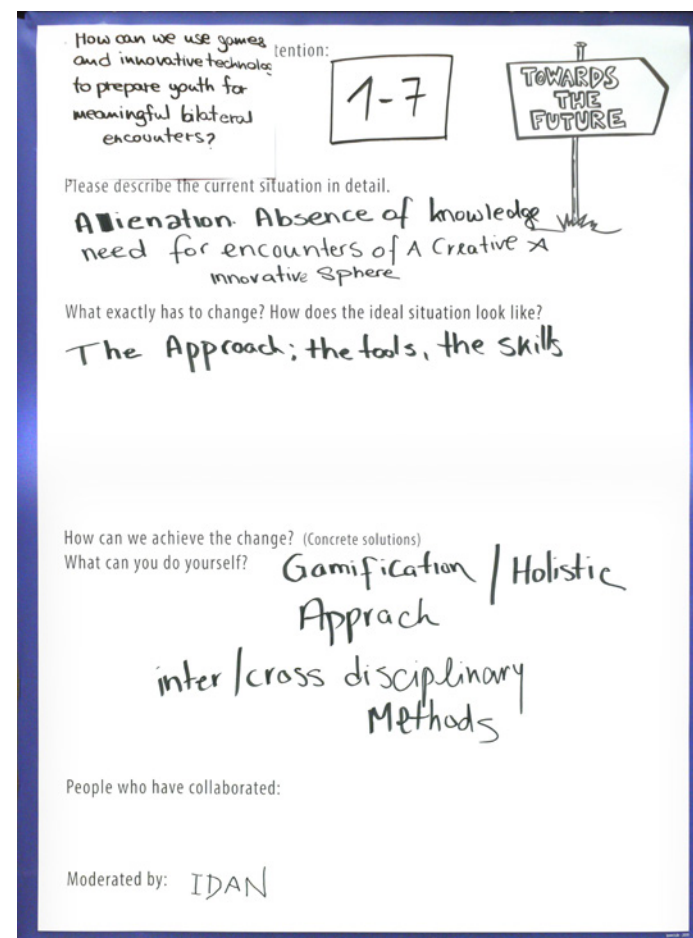 How can we use games
and innovative technolog
to prepare youth for
meaningful bilateral
encounters?
tention:
1-7
TOWARDS
THE
FUTURE
Please describe the current situation in detail.
Alienation. Absence of knowledge
need for encounters of A Creative A
innovative Sphere
What exactly has to change? How does the ideal situation look like?
The Approach; the tools, the skills
How can we achieve the change? (Concrete solutions)
What can you do yourself?
Gamification / Holistic
Apprach
inter/cross disciplinary
Methods
People who have collaborated:
Moderated by: IDAN